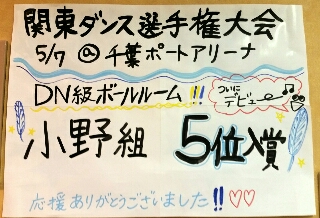 関東ダンス選手権大会
5/7 @ 千葉ポートアリーナ
DN級ボールルーム!!
ついに
デビュー♪
小野組 5位入賞
応援ありがとうございました!!♡♡